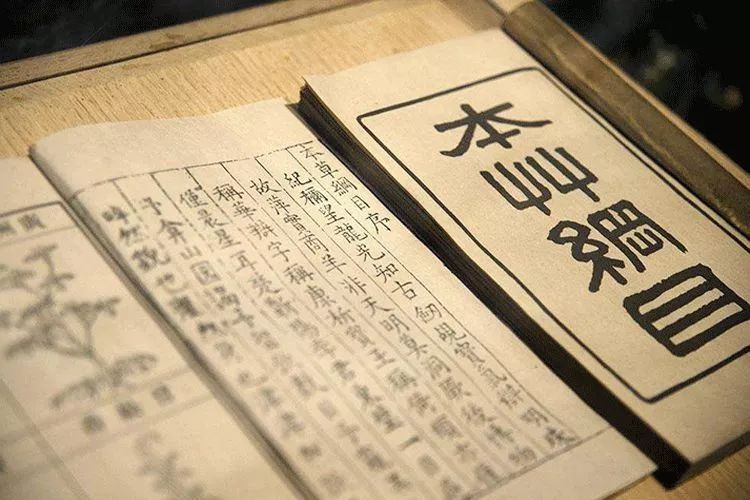 本艸綱目
本草綱目序
紀稱望龍光知古劍覘寶氣辨明珠
故萍實商羊非天明莫洞厥後博物
稱華辨字稱康析寶玉稱倚頓亦僅
僅晨星耳楚蘄陽李君東璧一
予弇山園謁予留飲數日予窺其
睟然貌也癯然